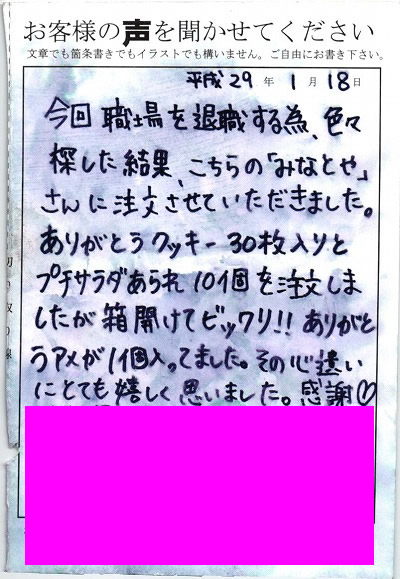 お客様の声を聞かせてください
文章でも箇条書きでもイラストでも構いません。ご自由にお書き下さい。
平成29年1月18日
今回職場を退職する為、色々
探した結果、こちらの「みなとや」
さんに注文させていただきました。
ありがとうクッキー30枚入りと
プチサラダあられ10個を注文しま
したが箱開けてビックリ!!ありがと
うアメが1個入ってました。その心遣い
にとても嬉しく思いました。感謝♡
切り取り線